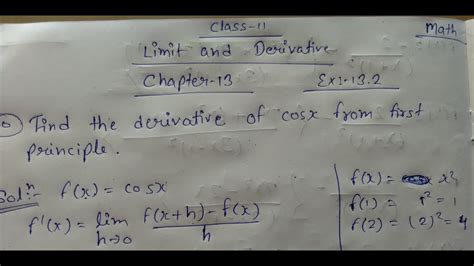 Class-11
Math
Limit and Derivative
Chapter-13 Ex:-13.2
Find the derivative of cosx from first
principle.
Sol<sup>n</sup>:- f(x) = cosx
f'(x) = lim h→0 f(x+h) - f(x) / h
f(x) = x²
f(1) = 1² = 1
f(2) = (2)² = 4